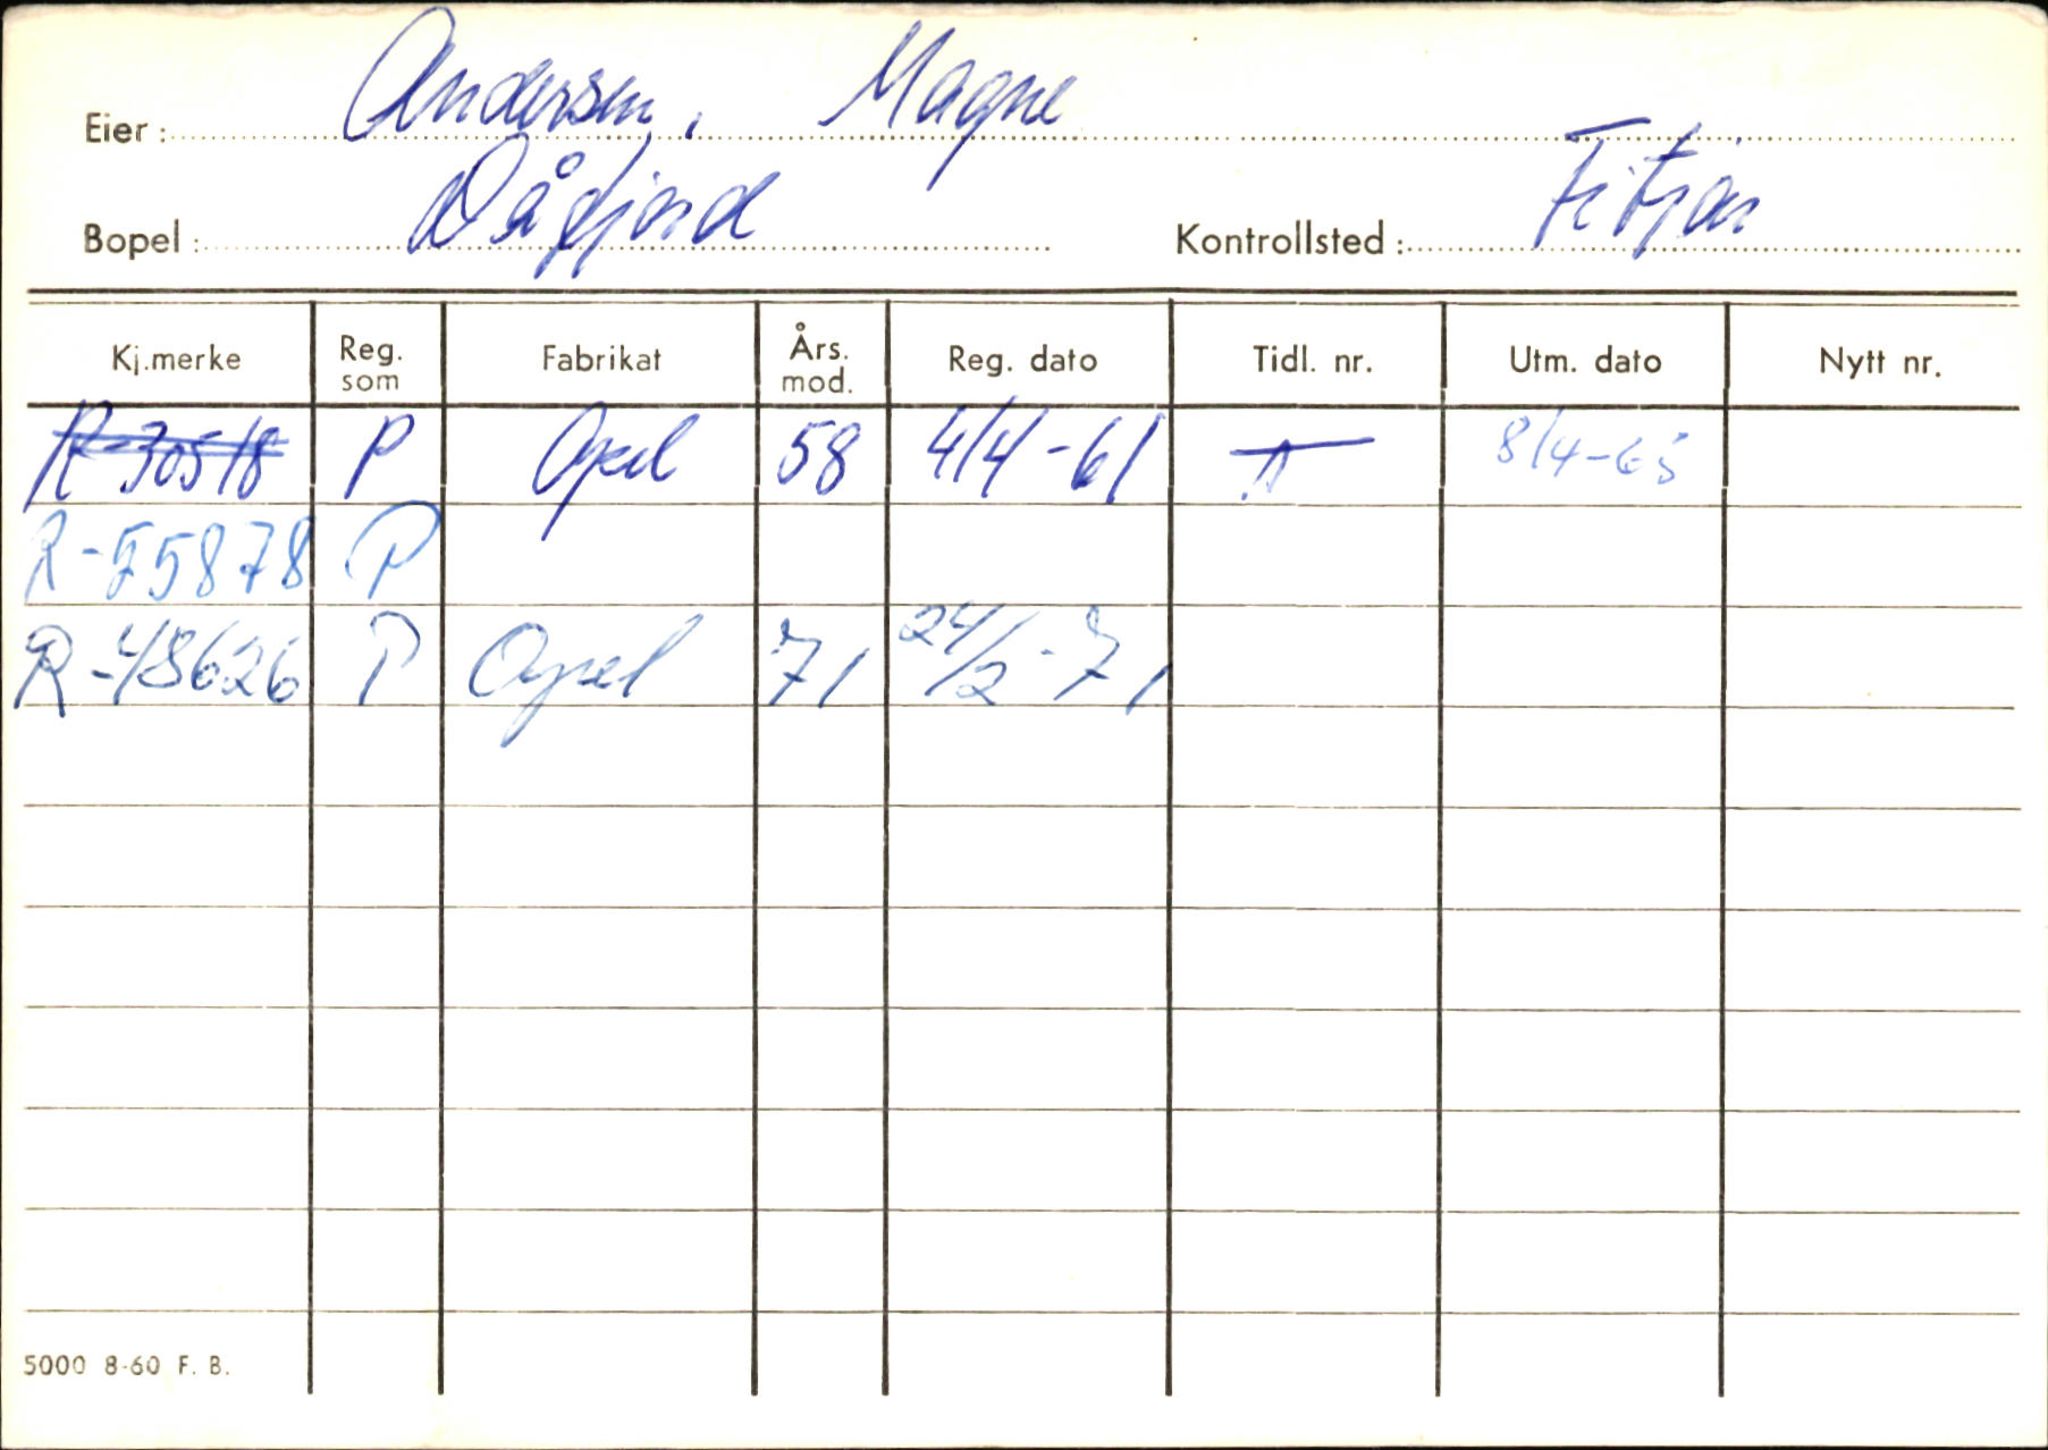 Eier: Andersen, Magne
Bopel: Dåfjord Kontrollsted: Fitjar
Kj.merke Reg. som Fabrikat Års. mod. Reg. dato Tidl. nr. Utm. dato Nytt nr.
R-30518 P Opel 58 4/4-61 8/4-65
R-55878 P
R-48626 P Opel 71 24/2-71
5000 8-60 F. B.